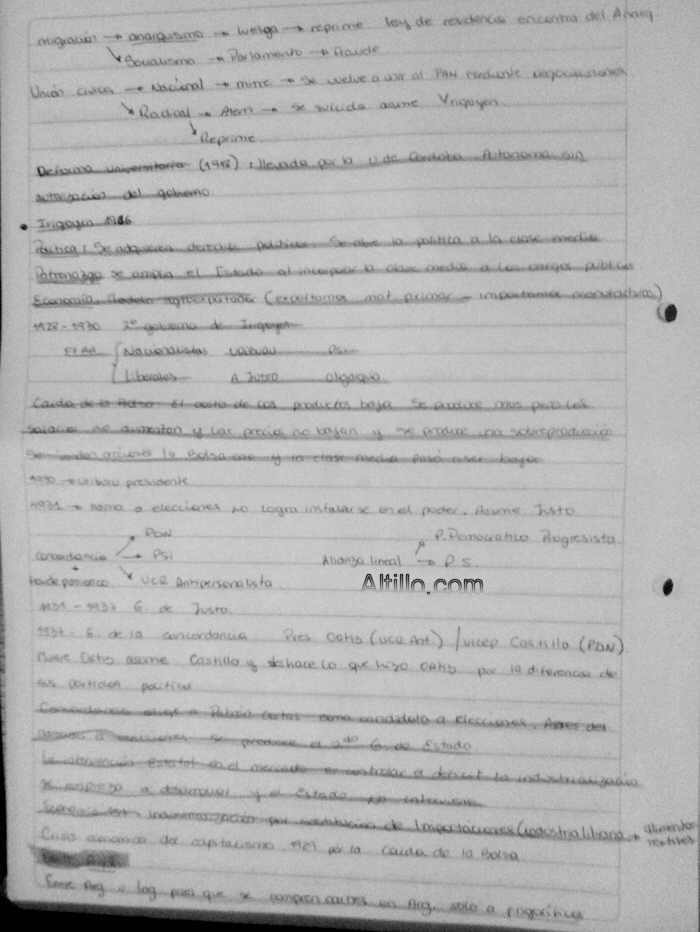 migración → anarquismo → huelga → reprime ley de residencia encontra del Anarq.
↘ Socialismo → Parlamento → fraude
Unión cívica → Nacional → mitre → Se vuelve a unir al PAN mediante negociaciones
↘ Radical → Alem → se suicida asume Yrigoyen.
↘ Reprime
Reforma universitaria (1918): llevada por la U de Córdoba Autonoma sin
autorización del gobierno
• Irigoyen 1916
Política: Se adquieren derechos políticos. Se abre la política a la clase media
Patronazgo se amplia el Estado al incorporar la clase media a los cargos públicos
Economía. Modelo agroexportador (exportamos mat primas - importamos manufacturas)
1928-1930 2º gobierno de Irigoyen
Nacionalistas Uriburu PSI
Liberales A Justo oligarquia
Caida de la Bolsa: El costo de los productos baja Se produce mas pero los
salarios no aumentan y los precios no bajan y se produce una sobreproducción
la Bolsa cae y la clase media pasó a ser baja
1930 → Uriburu presidente
1931 → llama a elecciones no logra instalarse en el poder. Asume Justo
PDN P. Democratico Progresista
concordancia PSI Alianza P S.
+
fraude patriotico UCR Antipersonalista
Altillo.com
1931 - 1937 G. de Justo.
1937 - G. de la concordancia Pres Ortiz (UCR Ant.) / vicep Castillo (PDN)
Muere Ortiz asume Castillo y deshace lo que hizo Ortiz por la diferencia de
sus partidos políticos
Concordancia elige a Costas como candidato a elecciones. Antes del
se produce el 2do G. de Estado
La intervención Estatal en el mercado controlar a deficit la industrialización
se empieza a desarrollar y el Estado
Industrialización por sustitución de Importaciones (industria liviana → alimentos
textiles
Crisis economica del capitalismo 1929 por la caida de la Bolsa
Arg. e Ing para que se compren carnes en Arg. solo a frigoríficos